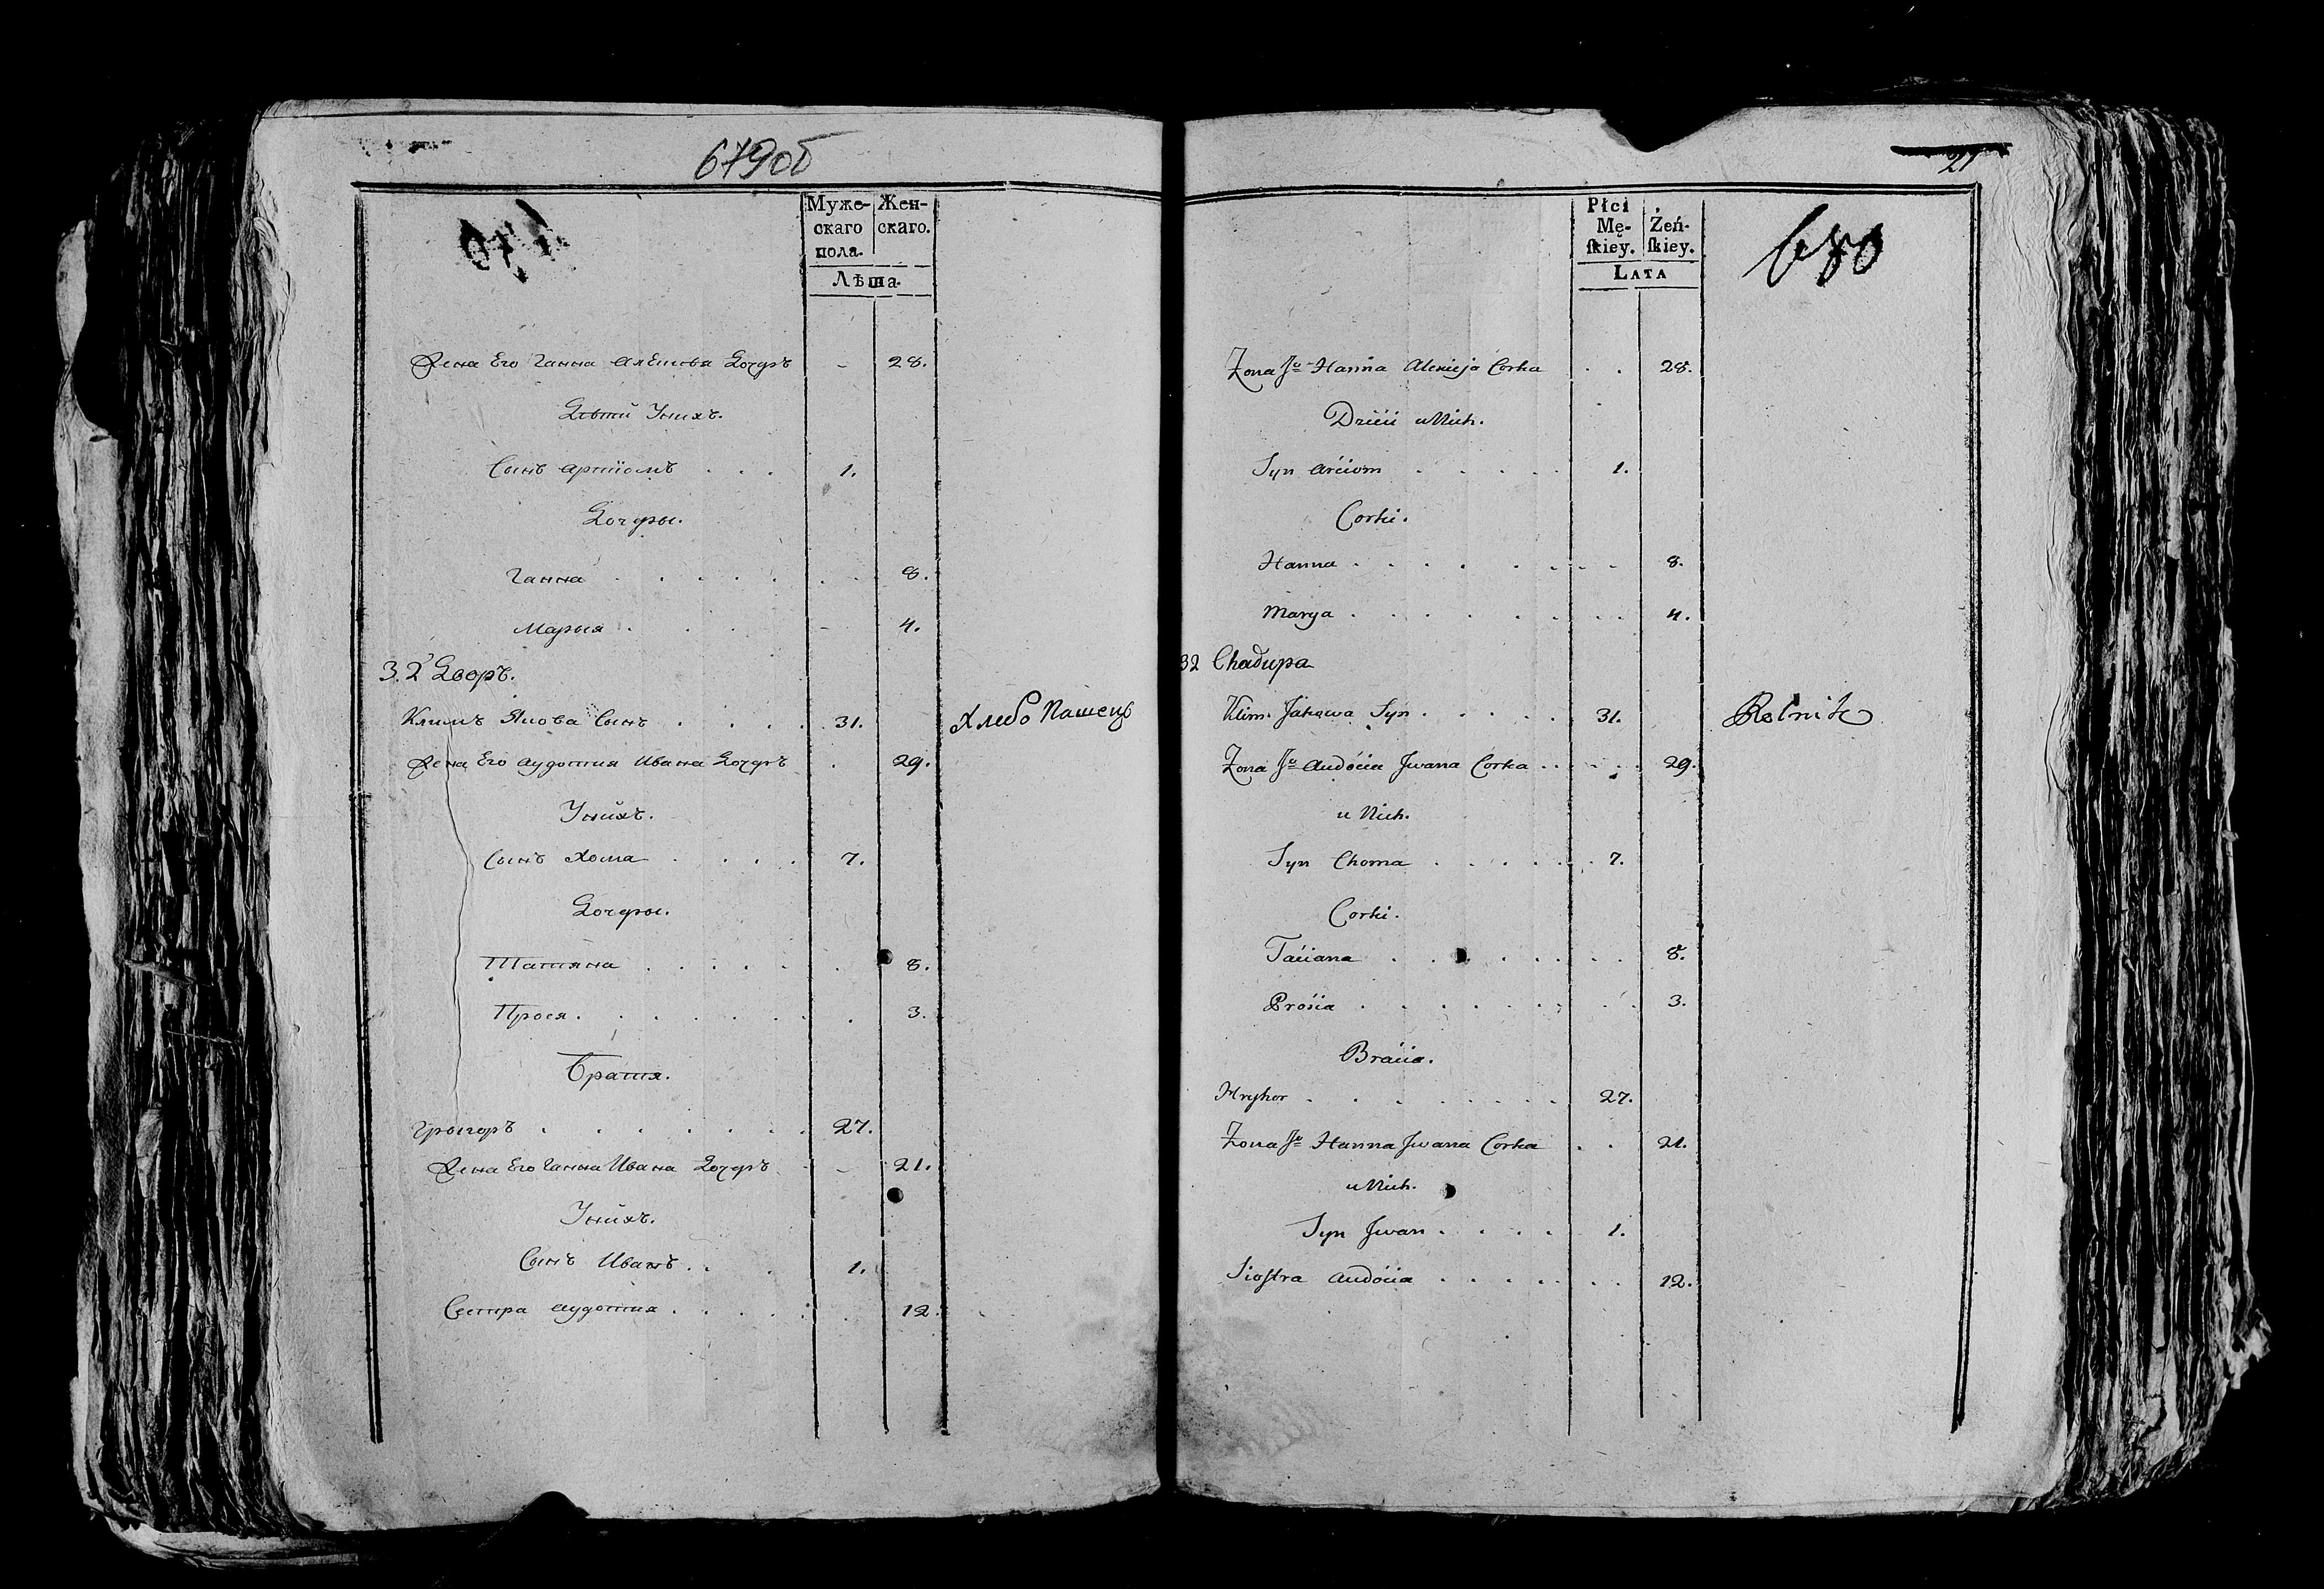 679об
Муже-
скаго
пола.
Жен-
скаго.
Лѣта.
Жена Его Ганна Алексѣя Дочерь - 28.
Дѣти Унихъ.
Сынъ Артіомъ . . . 1.
Дочеры.
Ганна . . . . . . . 8.
Марыя . . . - 4.
32 Дворъ.
Климъ Якова Сынъ . . . . 31. Хлебо Пашецъ
Жена Его Аудотия Ивана Дочерь . 29.
Унихъ.
Сынъ Хома . . . . 7.
Дочеры.
Татяна . . . . . . 8.
Прося . . . . . . . 3.
Братя.
Грыгоръ . . . . . . . 27.
Жена Его Ганна Ивана Дочерь - 21.
Унихъ.
Сынъ Иванъ . . . 1.
Сестра Аудотия . . . . . 12.
21
Płci
Mę-
ſkiey.
Żeń-
ſkiey.
LATA
680
Zona Jo Hanna Alexieja Corka . . 28.
Dzieci u Nich.
Syn Arciom . . . . . 1.
Corki.
Hanna . . . . . . . . 8.
Marya . . . . . . . . 4.
32 Chałupa
Klim Jakowa Syn . . . . . 31. Rolnik
Zona Jo Audocia Jwana Corka . . . . . 29.
u Nich.
Syn Choma . . . . . . 7.
Corki.
Taciana . . . . . . . . 8.
Prosia . . . . . . . . . 3.
Bracia.
Hryhor . . . . . . . . 27.
Zona Jo Hanna Jwana Corka . . 21.
u Nich.
Syn Jwan . . . . 1.
Sioſtra Audocia . . . . . . . 12.